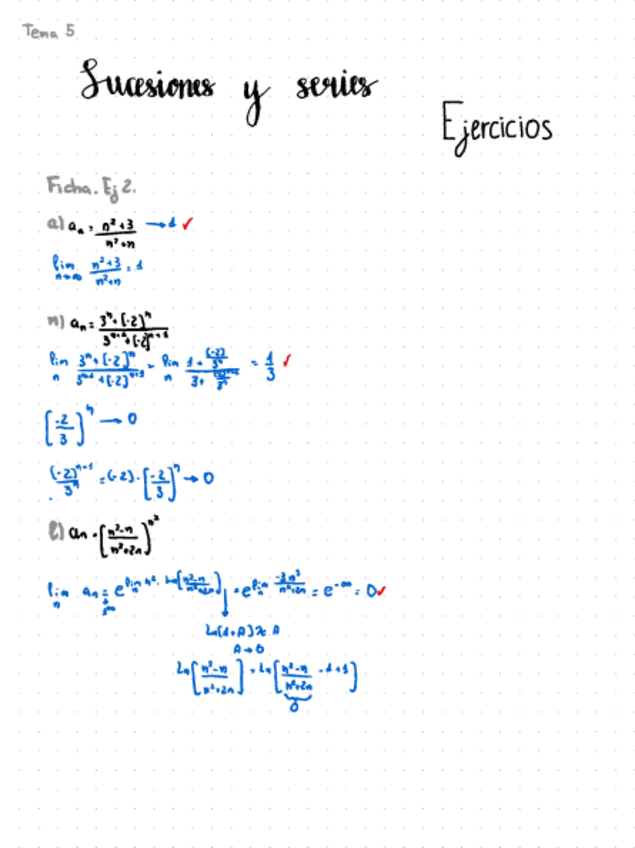 Tema 5
Sucesiones y series
Ejercicios
Ficha. Ej 2.
a) aₙ = (n²+3)/(n²+n) → 1 ✓
lim n→∞ (n²+3)/(n²+n) = 1
m) aₙ = (3ⁿ+(-2)ⁿ)/(3ⁿ⁺¹+(-2)ⁿ⁺¹)
lim n (3ⁿ+(-2)ⁿ)/(3ⁿ⁺¹+(-2)ⁿ⁺¹) = lim n (1+(-2)ⁿ/3ⁿ)/(3+(-2)ⁿ⁺¹/3ⁿ) = 1/3 ✓
[-2/3]ⁿ → 0
(-2)ⁿ⁺¹/3ⁿ = (-2)·[-2/3]ⁿ → 0
l) aₙ = [(n²-n)/(n²+2n)]^n²
lim n aₙ = e^(lim n n²·Ln[(n²-n)/(n²+2n)]) = e^(lim n -3n³/(n²+2n)) = e^-∞ = 0 ✓
1^∞
Ln(1+A) ≈ A
A→0
Ln[(n²-n)/(n²+2n)] = Ln[(n²-n)/(n²+2n) -1+1]
0